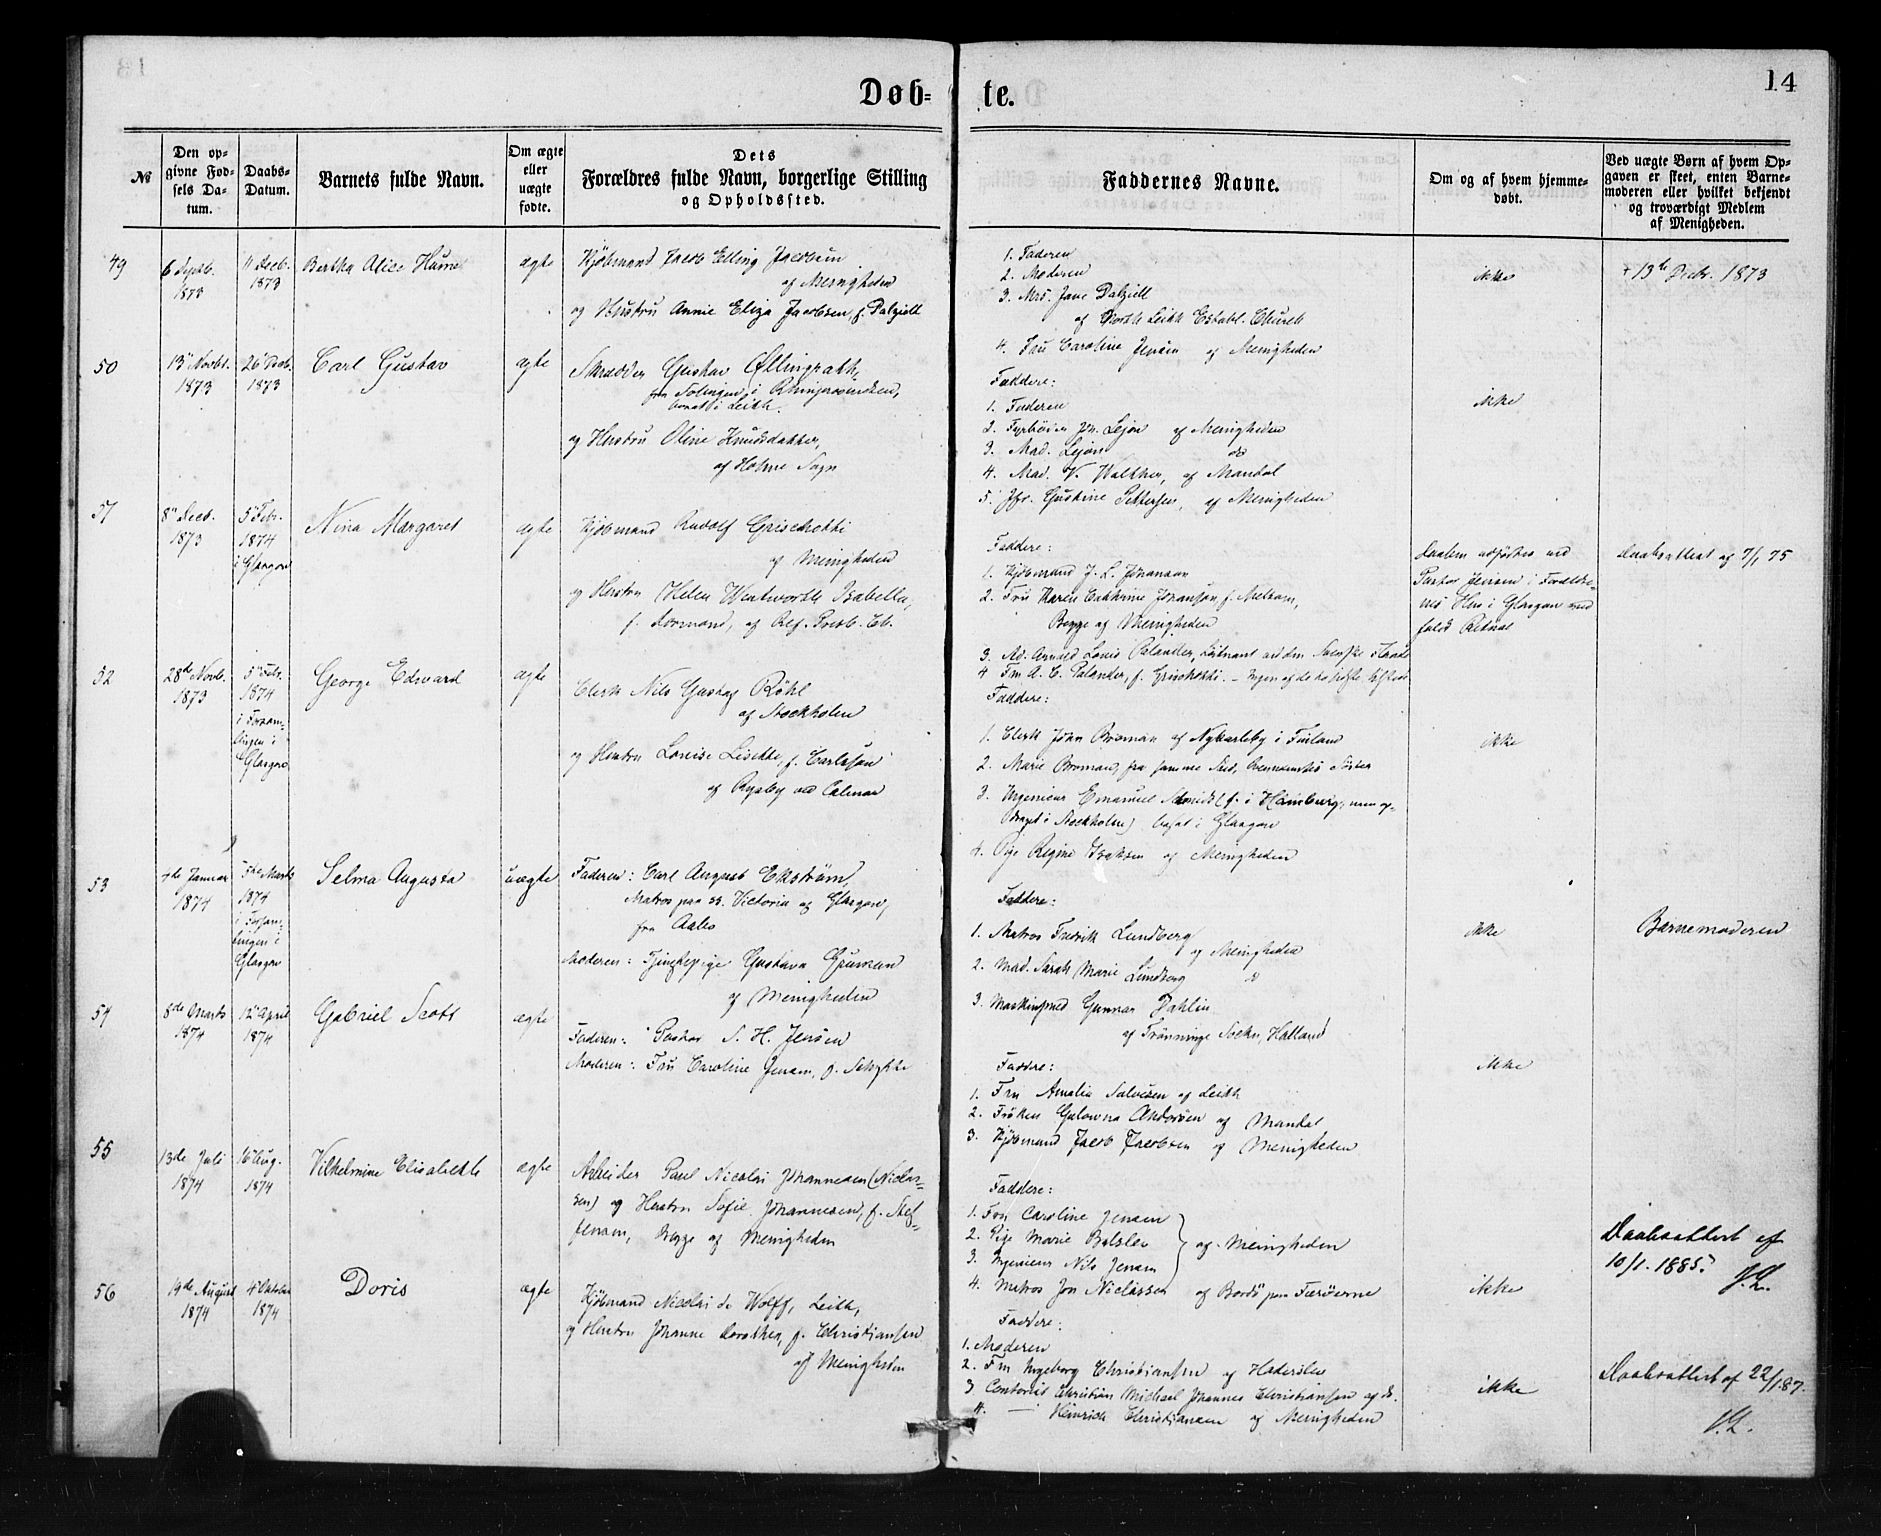 Døb=
te.
14
№
Den op=
givne Fød=
sels Da=
tum.
Daabs=
Datum.
Barnets fulde Navn.
Om ægte
eller
uægte
fødte.
Dets
Forældres fulde Navn, borgerlige Stilling
og Opholdssted.
Faddernes Navne.
Om og af hvem hjemme=
døbt.
Ved uægte Børn af hvem Op=
gaven er skeet, enten Barne=
moderen eller hvilket bekjendt
og troværdigt Medlem
af Menigheden.
49
6
1873
11 Decb.
1873
Bertha Alice Hume
ægte
Kjøbmand Jacob Elling Jacobsen
af Menigheden
og Hustru Annie Eliza Jacobsen, f. Dalziell
1. Faderen
2. Moderen
3. Mrs. Jane Dalziell
af North Leith Establ. Church
4. Fru Caroline Jensen af Menigheden
ikke
+ 13de Decb. 1873
50
13 Novbr.
1873
26 Decb.
1873
Carl Gustav
ægte
Skrædder Gustav Øllingrath,
fra Solingen i
bosat i Leith.
og Hustru Oline Knudsdatter,
af Holme Sogn
Faddere:
1. Faderen
2. Fyrbøder Jn. Lejon af Menigheden
3. Mad. Lejon do
4. Mad. V. Walther, af Mandal
5. Jfr. Gustine Pettersen, af Menigheden
ikke
51
8 Decb.
1873
5 Febr.
1874
i Glasgow
Nina Margaret
ægte
Kjøbmand Rudolf Grischotti
af Menigheden
og Hustru Helen Wentworth Isabella,
f. Dormand, af Ref. Presb. Ch.
Faddere:
1. Kjøbmand J. L. Johanson
2. Fru Karen Cathrine Johanson, f. Melsom,
Begge af Menigheden
3. Ad. Arnold Louis Palander, Løitnant ved den Svenske Flaade
4 Fru A. C. Palander, f. Grischotti. – Ingen af de to sidste tilstede
Daaben udførtes ved
Pastor Jensen i Forældre-
nes Hus i Glasgow med
fuldt Ritual
Daabsattest af 7/1 75
52
28de Novb.
1873
5 Febr.
1874
i Forsam-
lingen i
Glasgow
George Edward
ægte
Clerk Nils Gustaf Röhl
af Stockholm
og Hustru Louise Lisette, f. Carlsson
af Ryssby ved Calmar
Faddere:
1. Clerk John Broman af Nykarleby i Finland
2. Marie Broman, fra samme Sted, Svennenstes Søster
3. Ingeniør Emanuel Schmidt (f. i Hamburg, men op-
draget i Stockholm) bosat i Glasgow
4. Pige Regine Isaksen af Menigheden
ikke
53
Januar
1874
5te Marts
1874
i Forsam-
lingen i
Glasgow
Selma Augusta
uægte
Faderen: Carl August Ekström,
Matros paa ss. Victoria af Glasgow,
fra Aabo
Moderen: Tjenestepige Gustava Gruman
af Menigheden
Faddere:
1. Matros Fredrik Lundberg
af Menigheden
2. Mad. Sarah Marie Lundberg do
3. Maskinsmed Gunnar Dahlin
af Trönninge Socken, Halland
ikke
Barnemoderen
54
8de Marts
1874
12 April
1874
Gabriel Scott
ægte
Faderen: Pastor S. H. Jensen
Moderen: Fru Caroline Jensen, f. Schytte
Faddere:
1. Fru Amalia Salvesen af Leith
2. Frøken Andersen af Mandal
3. Kjøbmand Jacob Jacobsen af Menigheden
ikke
55
13de Juli
1874
16 Aug.
1874
Vilhelmine Elisabeth
ægte
Arbeider Poul Nicolai Johannesen (Niclas-
sen) og Hustru Sofie Johannesen, f. Stef-
fensen, Begge af Menigheden
Faddere:
1. Fru Caroline Jensen
2. Pige Marie Balslev af Menigheden
3. Ingeniør Nils Jensen
4. Matros Jon Niclassen af Bordö paa Færøerne
ikke
Daabsattest af
10/1. 1885.
J. L.
56
19de August
1874
4 Oktober
1874
Doris
ægte
Kjøbmand Nicolai de Wolff, Leith,
og Hustru Johanne Dorothea, f. Christiansen
af Menigheden
Faddere:
1. Moderen
2. Fru Ingeborg Christiansen af Haderslev
3 Contorist Christian Michael Johannes Christiansen af do.
4. — Heinrich Christiansen af Menigheden
ikke
Daabsattest af 22/1 87.
J. L.